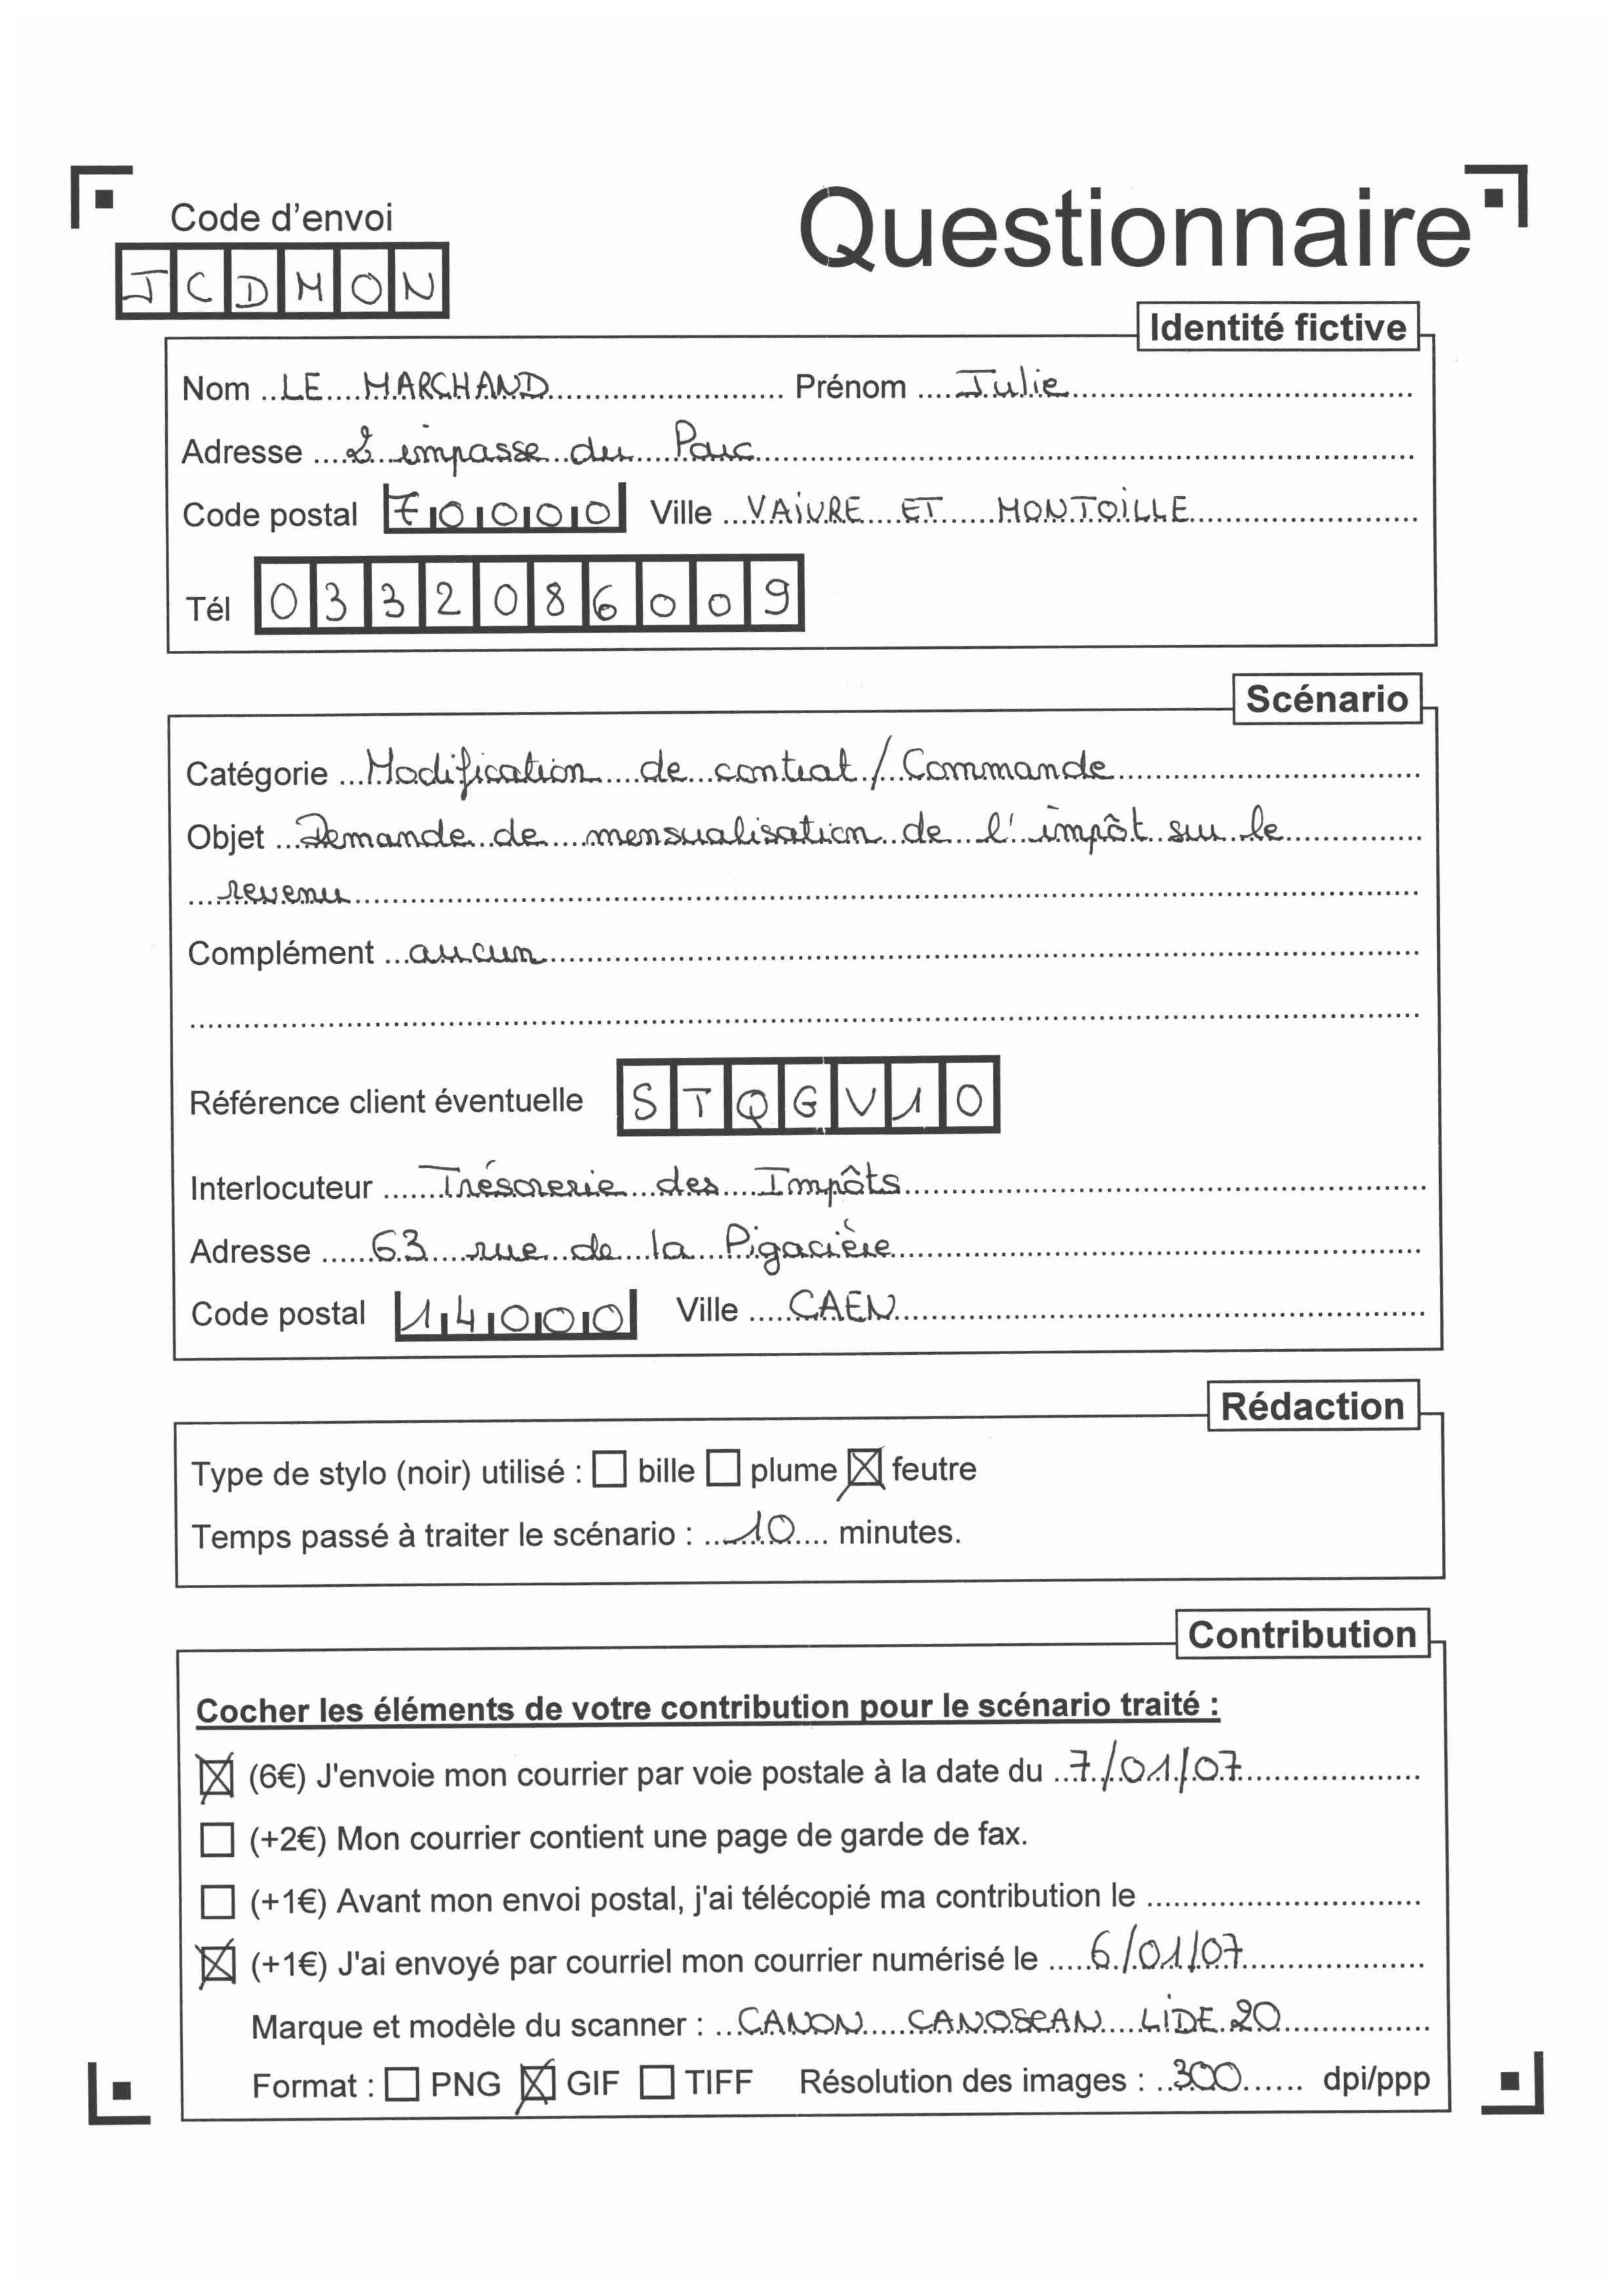 Code d'envoi
Questionnaire
JCDMON
Identité fictive
Nom LE MARCHAND Prénom Julie
Adresse 2 impasse du Parc
Code postal 70000 Ville VAIVRE ET MONTOILLE
Tél 0332086009
Scénario
Catégorie Modification de contrat / Commande
Objet Demande de mensualisation de l'impôt sur le
revenu
Complément aucun
Référence client éventuelle STQGV10
Interlocuteur Trésorerie des Impôts
Adresse 63 rue de la Pigacière
Code postal 14000 Ville CAEN
Rédaction
Type de stylo (noir) utilisé : ☐ bille ☐ plume ☒ feutre
Temps passé à traiter le scénario : 10 minutes.
Contribution
Cocher les éléments de votre contribution pour le scénario traité :
☒ (6€) J'envoie mon courrier par voie postale à la date du 7/01/07
☐ (+2€) Mon courrier contient une page de garde de fax.
☐ (+1€) Avant mon envoi postal, j'ai télécopié ma contribution le
☒ (+1€) J'ai envoyé par courriel mon courrier numérisé le 6/01/07
Marque et modèle du scanner : CANON CANOSCAN LIDE 20
Format : ☐ PNG ☒ GIF ☐ TIFF Résolution des images : 300 dpi/ppp